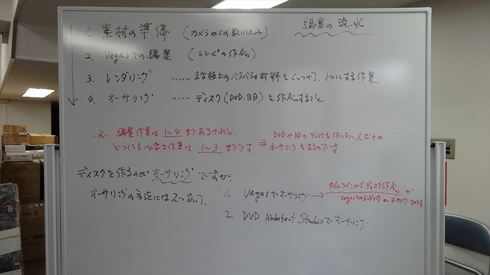 編集の流れ
1. 素材の準備 (カメラからの取り込み)
2. Vegasでの編集 (レシピの作成)
3. レンダリング …… まな板上のバラバラの材料を 1つにする作業
4. オーサリング …… ディスク(DVD, BD)を作成すること
※ 編集作業は1〜4まであるけれど、
どうしても必要な作業は 1〜3 までです。
⇒ DVDやBDのディスクを作りたい人だけが
オーサリングをするのです
ディスクを作るのが オーサリング ですが、
オーサリングの方法には2つあって、
1. Vegasでオーサリング → タイムラインからディスク作成
2. DVD Architect Studioでオーサリング